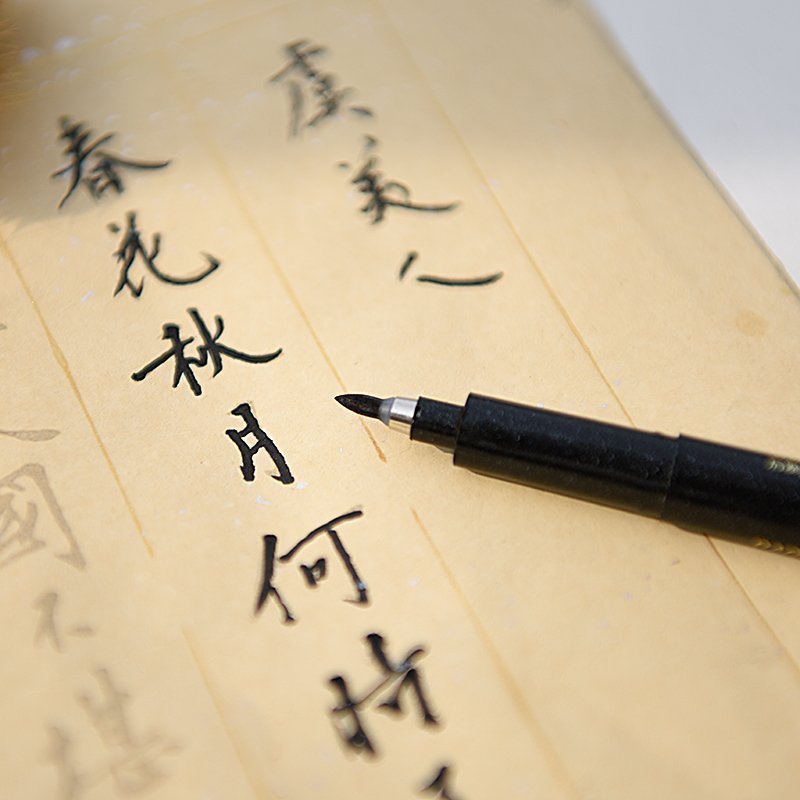 虞美人
春花秋月何時
國不堪